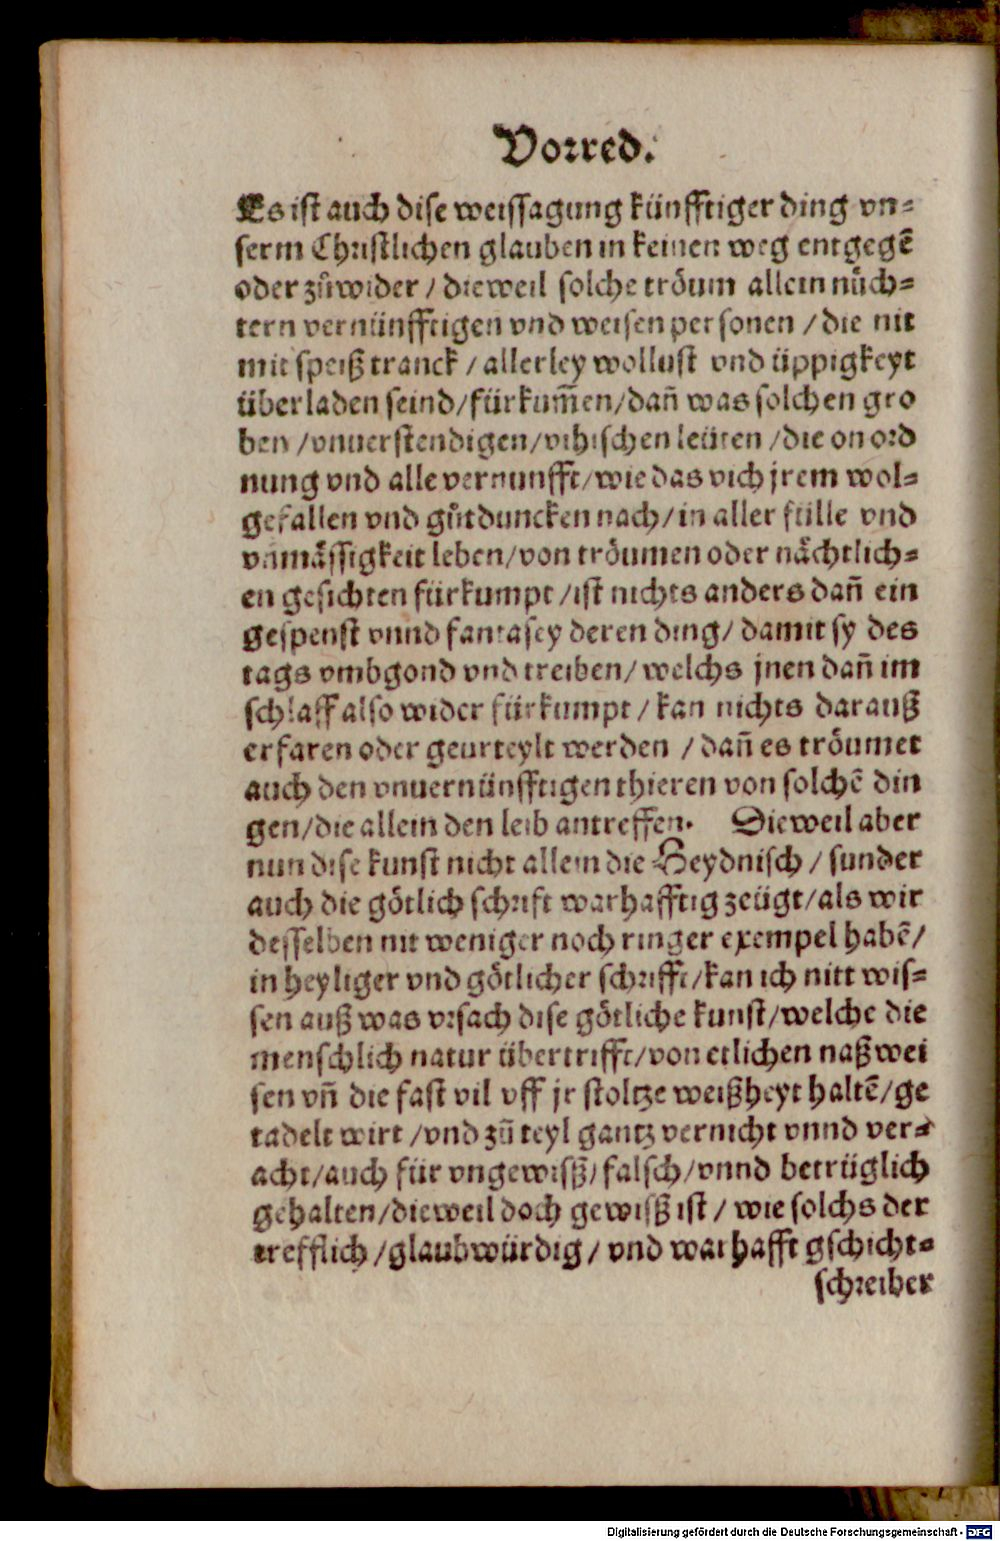 Vorred.
Es ist auch dise weissagung künfftiger ding vn⸗
serm Christlichen glauben in keinen weg entgegē
oder zůwider / dieweil solche tröum allein nüch⸗
tern vernünfftigen vnd weisen personen / die nit
mit speiß tranck / allerley wollust vnd üppigkeyt
überladen seind/fürkum̄en/dañ was solchen gro
ben /vnuerstendigen/vihischen leüten /die on ord
nung vnd alle vernunfft/wie das vich jrem wol⸗
gefallen vnd gůtduncken nach/in aller fülle vnd
vnmässigkeit leben/von tröumen oder nächtlich⸗
en gesichten fürkumpt /ist nichts anders dañ ein
gespenst vnnd fantasey deren ding/ damit sy des
tags vmbgond vnd treiben/ welchs jnen dañ im
schlaff also wider fürkumpt / kan nichts darauß
erfaren oder geurteylt werden / dañ es tröumet
auch den vnuernünfftigen thieren von solchē din
gen/die allein den leib antreffen. Dieweil aber
nun dise kunst nicht allein die Heydnisch / sunder
auch die götlich schrift warhafftig zeügt/als wir
desselben nit weniger noch ringer exempel habē/
in heyliger vnd götlicher schrifft/kan ich nitt wis⸗
sen auß was vrsach dise götliche kunst/welche die
menschlich natur übertrifft/von etlichen naßwei
sen vñ die fast vil vff jr stoltze weißheyt haltē/ge
tadelt wirt /vnd zů teyl gantz vernicht vnnd ver⸗
acht/auch für vngewisß/ falsch/vnnd betrüglich
gehalten/dieweil doch gewisß ist / wie solchs der
trefflich /glaubwürdig / vnd warhafft gschicht⸗
schreiber
Digitalisierung gefördert durch die Deutsche Forschungsgemeinschaft - DFG